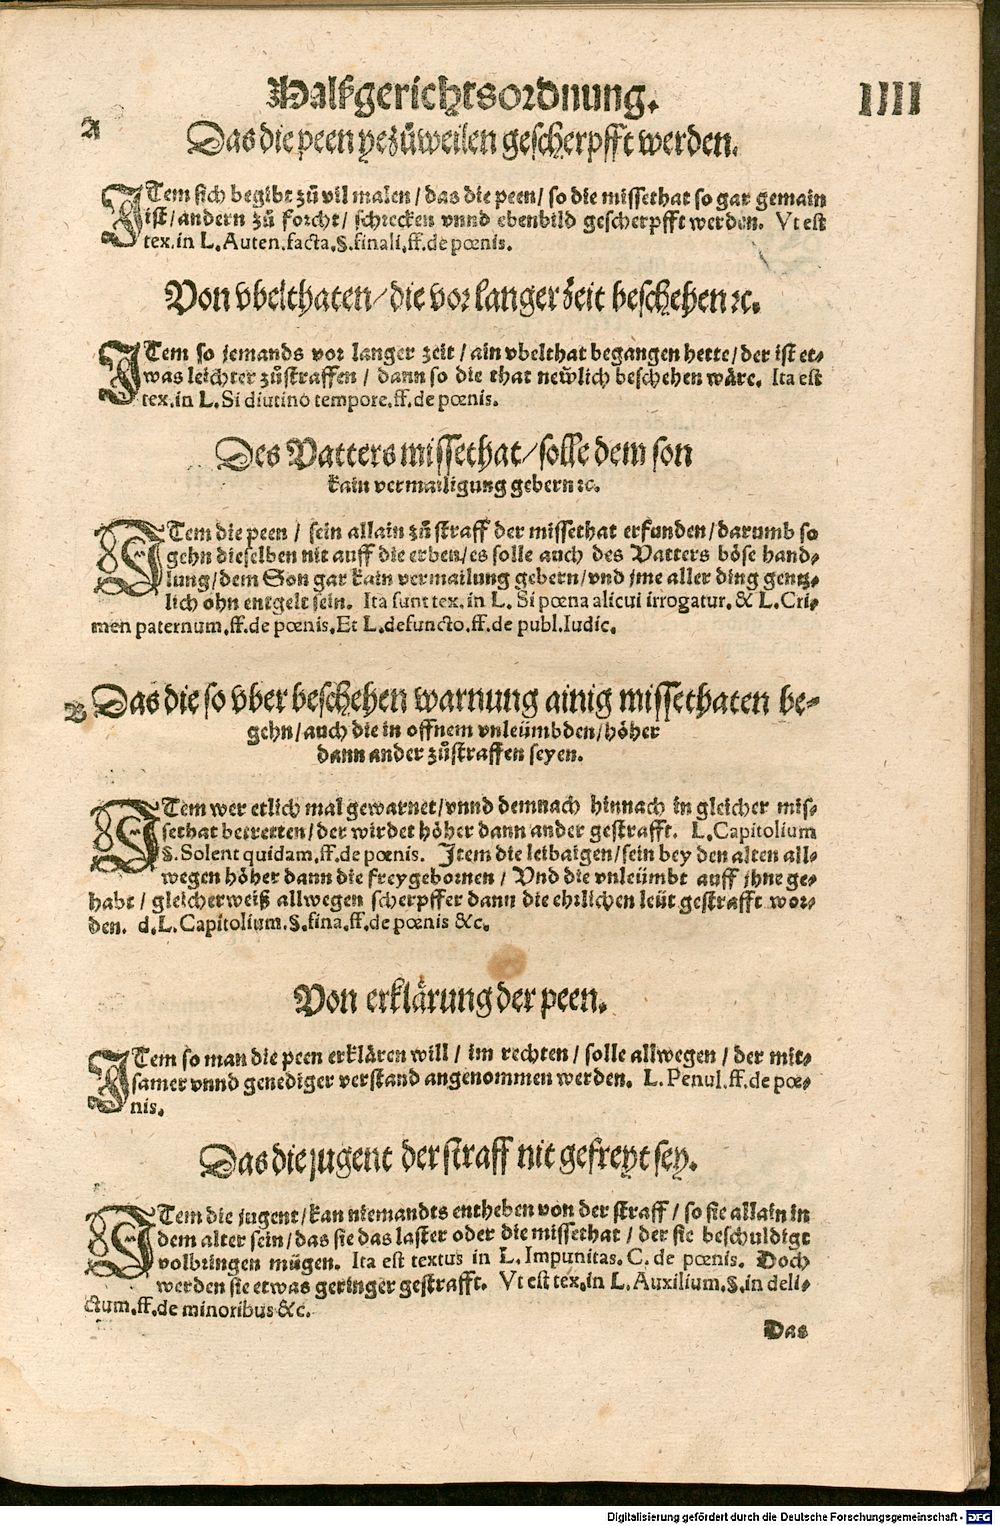 Halßgerichtsordnung. IIII
A
Das die peen yezůweilen gescherpfft werden.
ITem sich begibt zů vil malen / das die peen / so die missethat so gar gemain
ist / andern zů forcht / schrecken vnnd ebenbild gescherpfft werden. Vt est
tex. in L. Auten. facta. §. finali. ff. de pœnis.
Von vbelthaten / die vor langer zeit beschehen ꝛc.
ITem so jemands vor langer zeit / ain vbelthat begangen hette / der ist et-
was leichter zůstraffen / dann so die that newlich beschehen wäre. Ita est
tex. in L. Si diutino tempore. ff. de pœnis.
Des Vatters missethat / solle dem son
kain vermailigung gebern ꝛc.
ITem die peen / sein allain zů straff der missethat erfunden / darumb so
gehn dieselben nit auff die erben / es solle auch des Vatters böse hand-
lung / dem Son gar kain vermailung gebern / vnd jme aller ding gentz-
lich ohn entgelt sein. Ita sunt tex. in L. Si pœna alicui irrogatur. & L. Cri-
men paternum. ff. de pœnis. Et L. defuncto. ff. de publ. Iudic.
B Das die so vber beschehen warnung ainig missethaten be-
gehn / auch die in offnem vnleümbden / höher
dann ander zůstraffen seyen.
ITem wer etlich mal gewarnet / vnnd demnach hinnach in gleicher mis-
sethat betretten / der wirdet höher dann ander gestrafft. L. Capitolium
§. Solent quidam. ff. de pœnis. Item die leibaigen / sein bey den alten all-
wegen höher dann die freygebornen / Vnd die vnleümbt auff jhne ge-
habt / gleicherweiß allwegen scherpffer dann die ehrlichen leüt gestrafft wor-
den. d. L. Capitolium. §. fina. ff. de pœnis &c.
Von erklärung der peen.
ITem so man die peen erklären will / im rechten / solle allwegen / der mit-
samer vnnd genediger verstand angenommen werden. L. Penul. ff. de pœ-
nis.
Das die jugent der straff nit gefreyt sey.
ITem die jugent / kan niemandts entheben von der straff / so sie allain in
dem alter sein / das sie das laster oder die missethat / der sie beschuldigt
volbringen mügen. Ita est textus in L. Impunitas. C. de pœnis. Doch
werden sie etwas geringer gestrafft. Vt est tex. in L. Auxilium. §. in deli-
ctum. ff. de minoribus &c.
Das
Digitalisierung gefördert durch die Deutsche Forschungsgemeinschaft - DFG